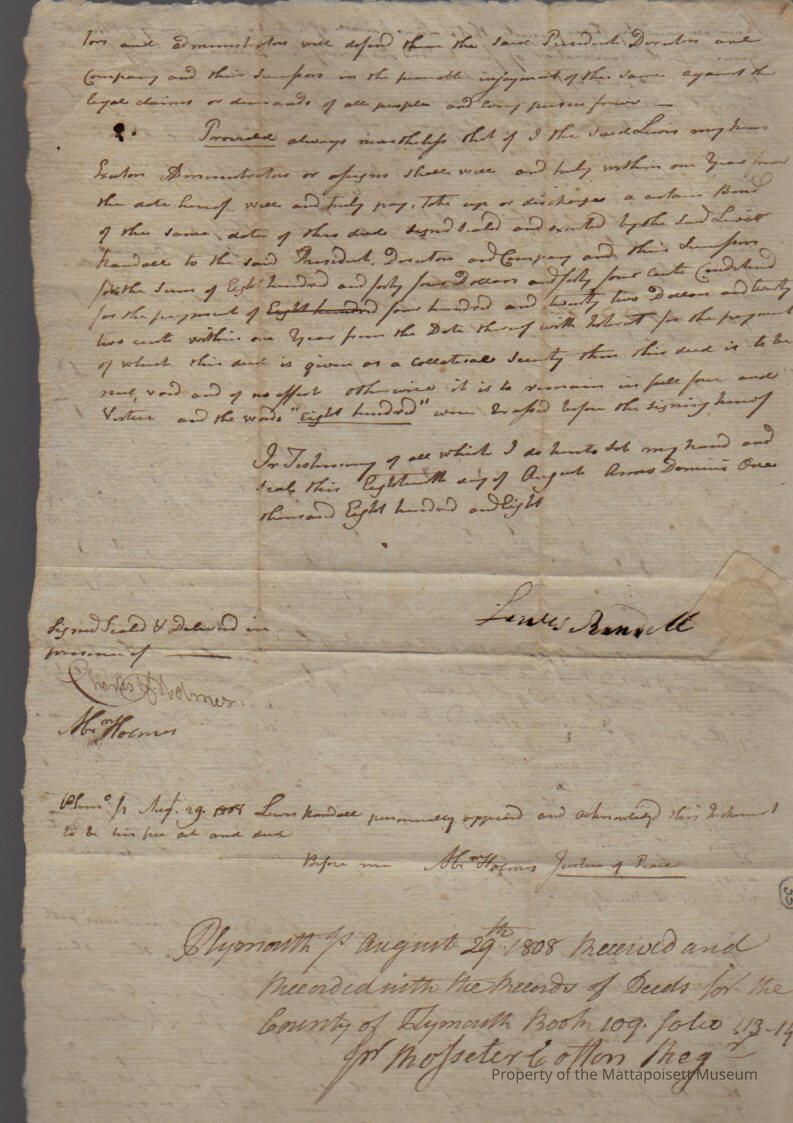 tors and administrators will defend them the said President Directors and
Company and their Successors in the peaceable injoyment of the same against the
legal claims or demands of all people and every person forever —
Provided always nevertheless that if I the said Lewis my heirs
Exutors Administrators or assigns shall well and truly within one Year from
the date hereof well and truly pay, take up or discharge a certain Bond
of the same date of this deed signed seald and exected by the said Lewis
Randall to the said President, Directors and Company and their Sucessors
for the Sum of Eight hundred and forty four Dollars and forty four cents Conditiond
for the payment of Eight hundred four hundred and twenty two Dollars and twenty
two cents within one Year from the Date thereof with Interest for the payment
of which this deed is given as a collateral Security then this deed is to be
null, void and of no effect otherwise it is to remain in full force and
Vertue and the words "Eight hundred" were Erassed before the signing hereof
In Testimony of all which I do hereto Set my hand and
seal this Eighteenth day of August Anno Domini One
thousand Eight hundred and Eight
Lewis Randell
Signed Seald & Delivered in
presence of
Charles Holmes
Abrm Holmes
Plymo ss Augt. 29. 1808 Lewis Randall personally appeared and acknowledgd this Instrument
to be his free act and deed
Before me Abrm Holmes Justice of Peace
Plymouth ss August 29th 1808 Received and
Recorded with the Records of Deeds for the
County of Plymouth Book 109. folio 113-14
pr Rosseter Cotton Regr
Property of the Mattapoisett Museum